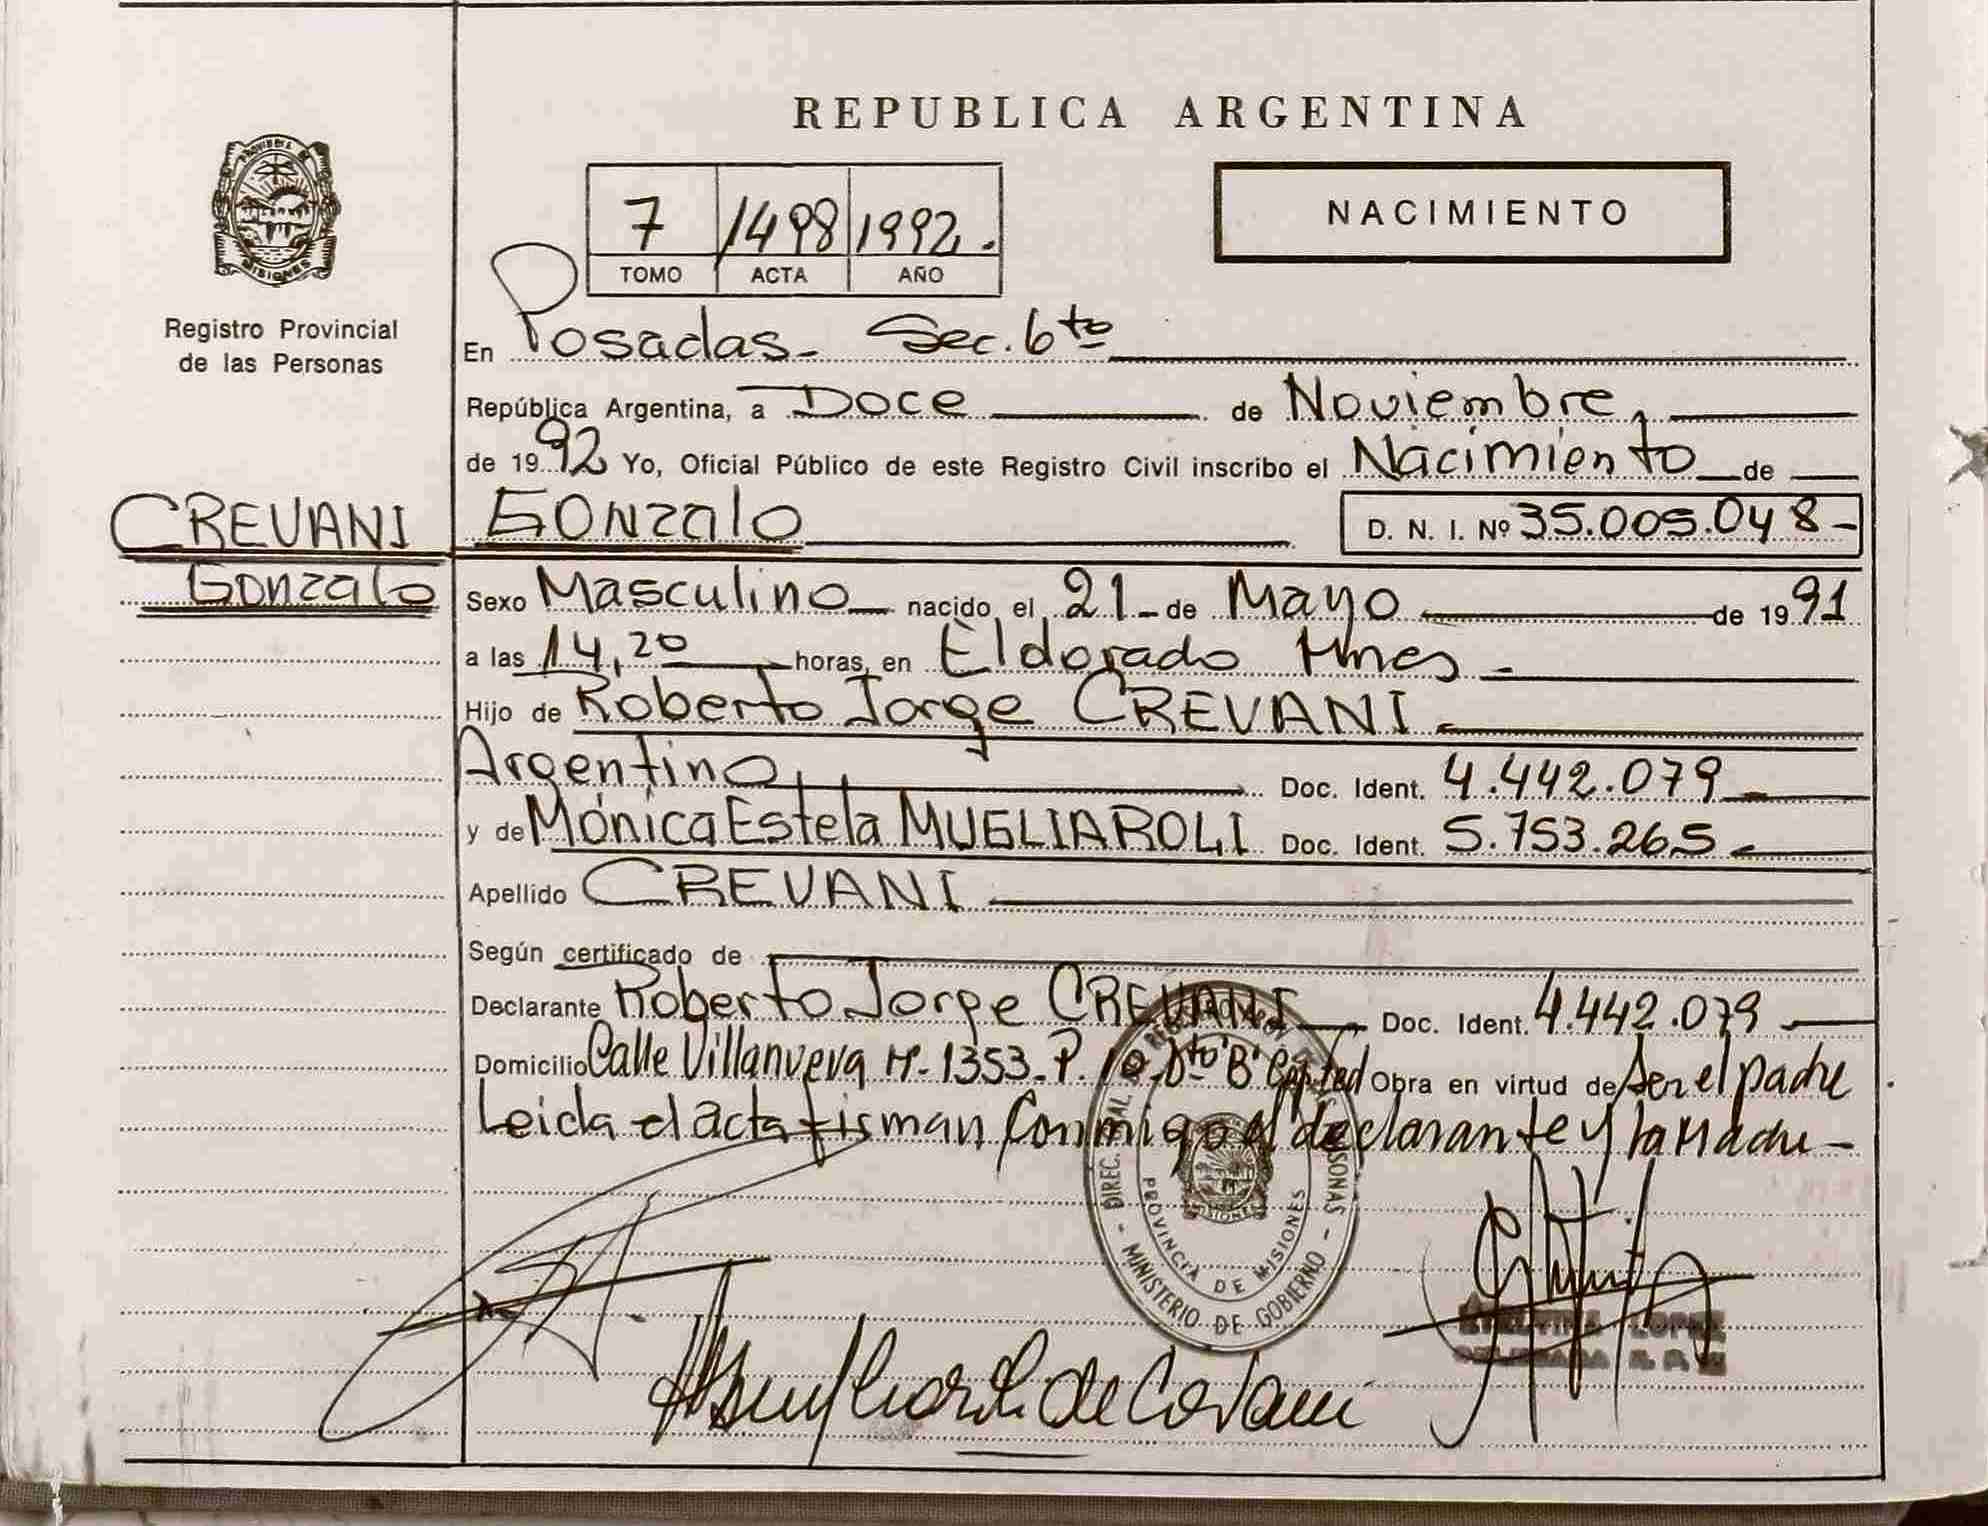 REPUBLICA ARGENTINA
NACIMIENTO
7 1498 1992.
TOMO ACTA AÑO
MISIONES
Registro Provincial
de las Personas
En Posadas - Sec. 6to
República Argentina, a Doce de Noviembre,
de 1992 Yo, Oficial Público de este Registro Civil inscribo el Nacimiento de
CREVANI Gonzalo D. N. I. Nº 35.005.048-
Gonzalo
Sexo Masculino nacido el 21 - de Mayo de 1991
a las 14,20 horas, en Eldorado Mnes -
Hijo de Roberto Jorge CREVANI -
Argentino, Doc. Ident. 4.442.079
y de Mónica Estela MUGLIAROLI Doc. Ident. 5.753.265 -
Apellido CREVANI
Según certificado de
Declarante Roberto Jorge CREVANI Doc. Ident. 4.442.079
Domicilio Calle Villanueva Nº 1353 - P. 10 - Dto "B" Cap. Fed Obra en virtud de Ser el padre
Leida el acta firman conmigo el declarante y la Madre -
DIREC. PERSONAS
PROVINCIA DE MISIONES
MINISTERIO DE GOBIERNO
LOPEZ
DELEGADA R. P.